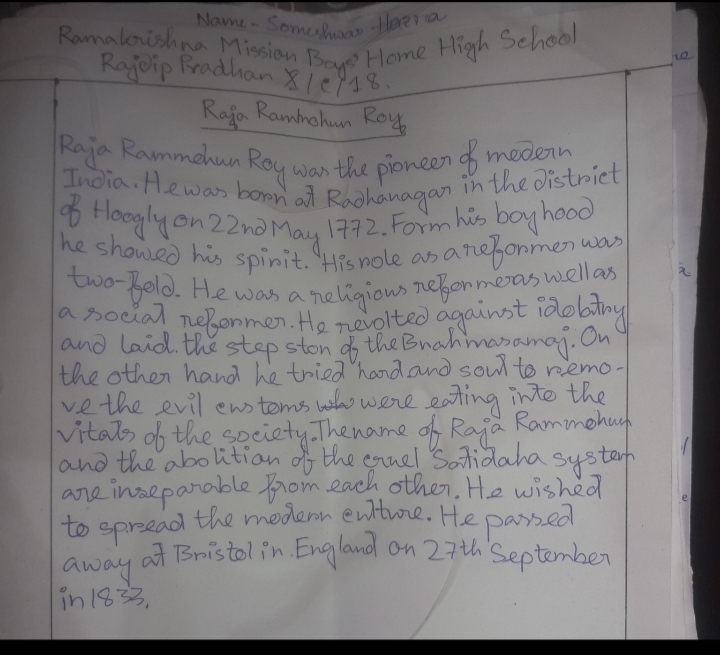 Name - Someshwar Hazra
Ramakrishna Mission Boys' Home High School
Rajdip Pradhan X/c/18.
Raja Rammohun Roy
Raja Rammohun Roy was the pioneer of modern
India. He was born at Radhanagar in the district
of Hoogly on 22nd May 1772. Form his boyhood
he showed his spirit. His role as a reformer was
two-fold. He was a religious reformer as well as
a social reformer. He revolted against idolatry
and laid. the step ston of the Brahmasamaj. On
the other hand he tried hard and soul to remo-
ve the evil customs who were eating into the
vitals of the society. The name of Raja Rammohun
and the abolition of the cruel Satidaha system
are inseparable from each other. He wished
to spread the modern culture. He passed
away at Bristol in England on 27th September
in 1833.